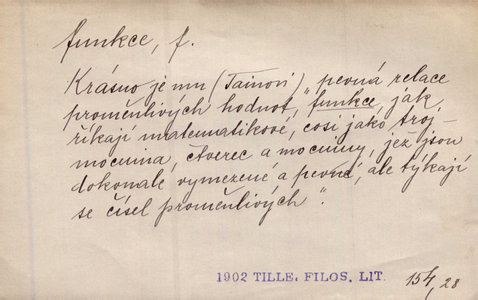 funkce, f.
Krásno je mu (Tainovi) "pevná relace
proměnlivých hodnot, "funkce, jak
říkají matematikové, cosi jako troj-
mocnina, čtverec a mocniny, jež jsou
dokonale vymezené a pevné, ale týkají
se čísel proměnlivých".
1902 TILLE, FILOS. LIT. 154, 28